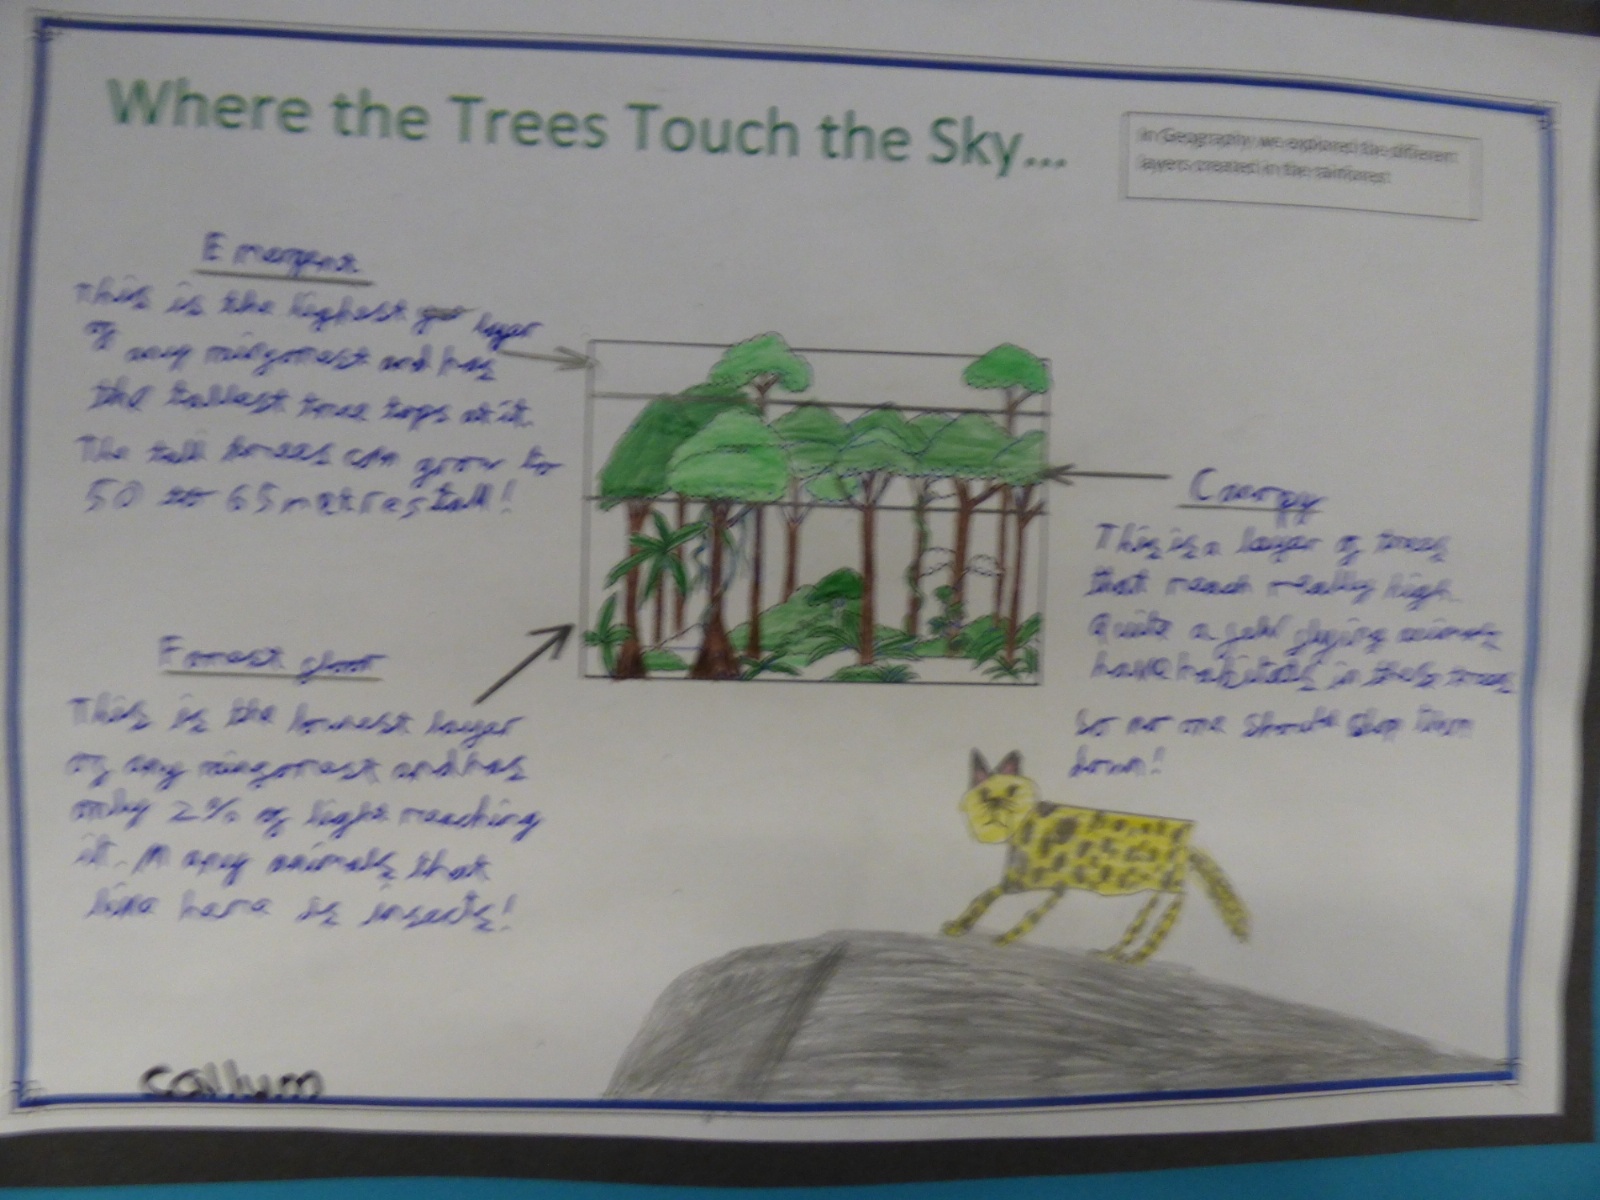 Where the Trees Touch the Sky...
In Geography we explored the different
layers created in the rainforest
Emergent
This is the highest layer
of any rainforest and has
the tallest tree tops at it.
The tall trees can grow to
50 to 65 metres tall!
Canopy
This is a layer of trees
that reach really high.
Quite a flying animals
have habitats in these trees
so no one should them
down!
Forest floor
This is the lowest layer
of any rainforest and has
only 2% of light reaching
it. Many animals that
live here is insects!
callum